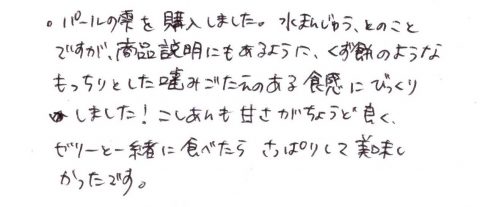 。パールの雫を購入しました。水まんじゅう、とのこと
ですが、商品説明にもあるように、くず餅のような
もっちりとした噛みごたえのある食感にびっくり
しました！こしあんも甘さがちょうど良く、
ゼリーと一緒に食べたら さっぱりして美味し
かったです。